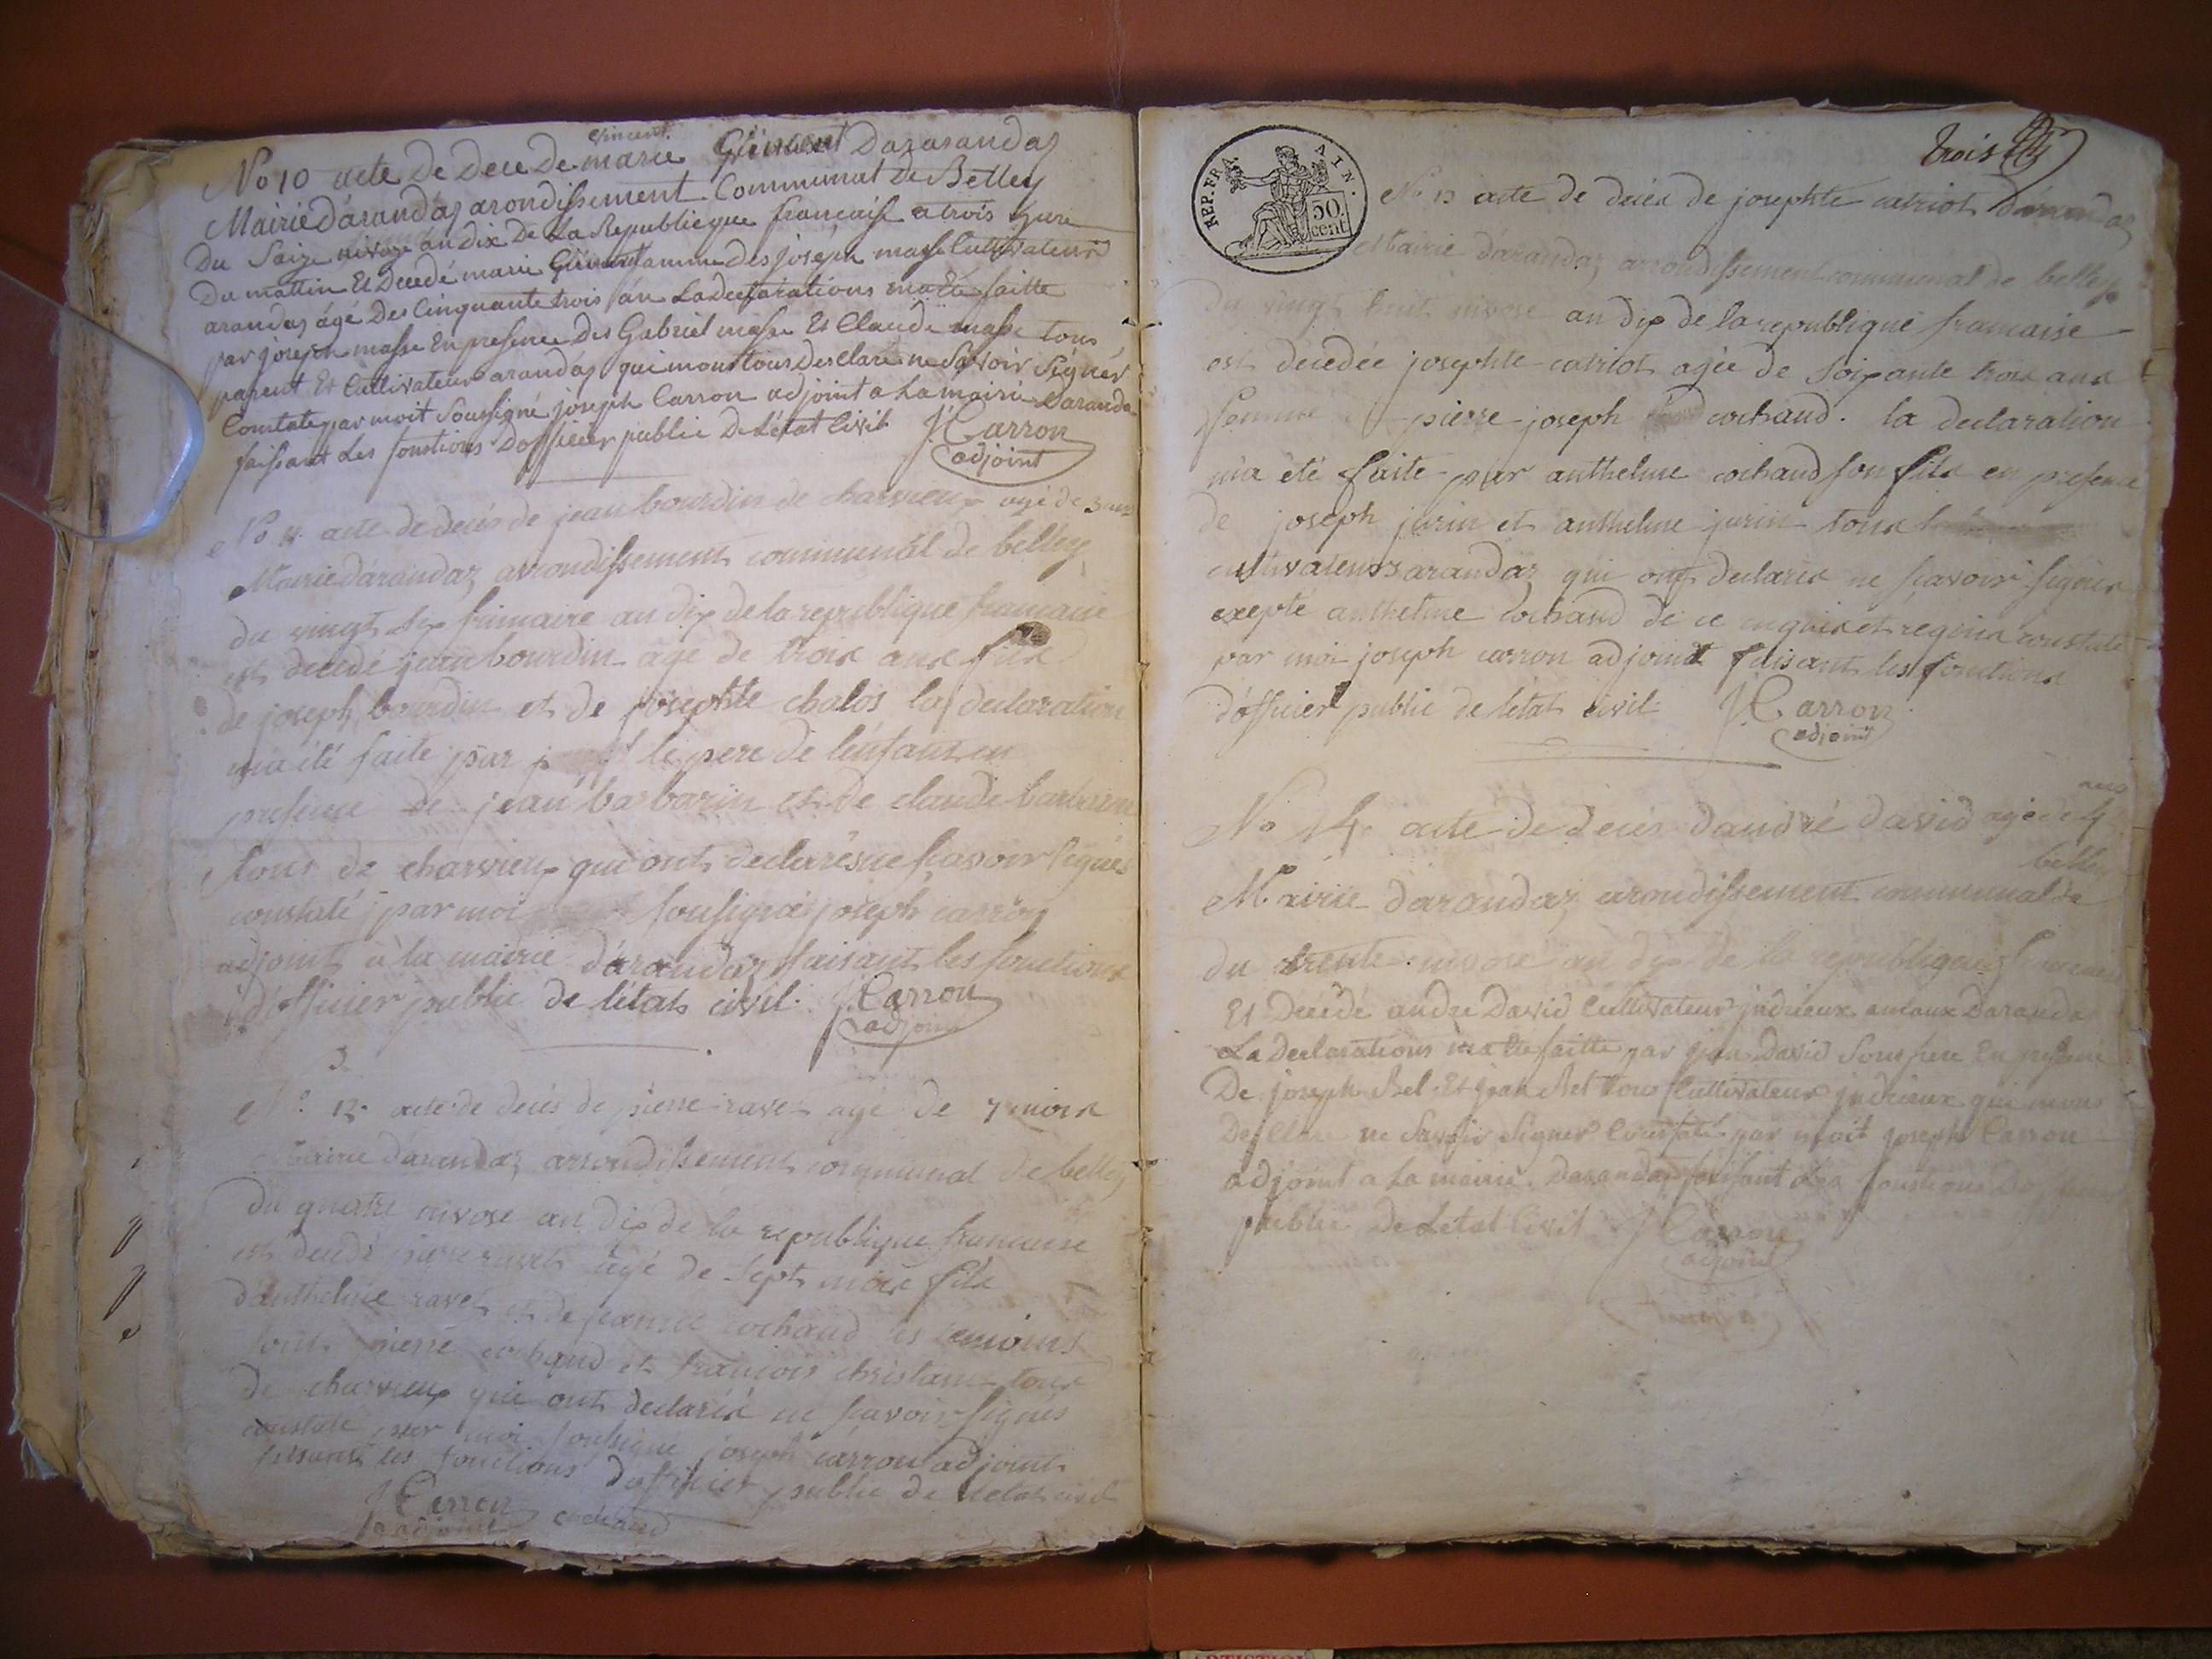 vincent
No 10 acte De Dece De marie Daranda
Mairie D'arandas arondissement Communal De Belley
Du Saize nivose an dix De La Republicque francaise a trois hure
Du mattin Et Decedé marie famme Des joseph masse Cultivateur
arandas ágé Des Cinquante trois án La declarations matte faitte
par joseph masse En presence Des Gabriel masse Et Claude masse tous
parent Et Cultivateur arandas qui mont tous Desclaré ne Savoir Signér
Constate par moit Soussigné joseph Carron adjoint a La mairie Daranda
faissant Les fonstions D'officier public De L'état Civil J Carron
adjoint
No 11 acte de deces de jean bourdin de charvieux agé de 3 ans
Mairie d'arandaz arrondissement communal de belley
du vingt six frimaire an dix de la republique francaise
est decedé jean bourdin agé de trois ans fils
de joseph bourdin et de josephte chalos la declaration
m'a été faite par le pere de l'enfant en
presence de jean barbarin et de claude barbarin
tous de charvieux qui ont declarés ne scavoir signés
constaté par moi soussigné joseph carron
adjoint à la mairie d'arandaz faisant les fonctions
d'officier public de l'état civil. J Carron
adjoint
3
No 12 acte de deces de pierre ravet agé de 7 mois
Mairie d'arandaz arrondissement communal de belley
du quatre nivose an dix de la republique francaise
est decedé pierre ravet agé de sept mois fils
d'anthelme ravet et de cochaud les temoins
sont pierre cochaud et francois christin tous
de charvieux qui ont declarés ne scavoir signés
constaté par moi soussigné joseph carron adjoint
faisant les fonctions d'officier public de l'etat civil
J Carron cochaud
adjoint
trois
REP. FRA AIN.
50
cent
No 13 acte de decés de josephte catriot d'arandaz
Mairie d'arandaz arrondissement communal de belley
du vingt huit nivose an dix de la republique francaise
est decedée josephte catriot agée de soixante trois ans
femme pierre joseph cochaud. la declaration
m'a été faite par anthelme cochaud son fils en presence
de joseph jurin et anthelme jurin tous
cultivateurs arandaz qui ont declarés ne scavoir signés
exepté anthelme cochaud de ce enquis et requis constaté
par moi joseph carron adjoint faisant les fonctions
d'officier public de l'état civil J Carron
adjoint
No 14 acte de decés d'andré david agé de
belley
Mairie d'arandaz arondissement communal de
du trente nivose an dix de la republique francaise
Et Decédé andre David Cultivateur Daranda
La declarations matte faitte par jean David En presence
De joseph Bel Et jean Bel tous Cultivateur qui mont
Desclaré ne Savoir Signer Constaté par moit joseph Carron
adjoint a La mairie Darandas faissant des fonstions
public De Letat Civil J Carron
adjoint